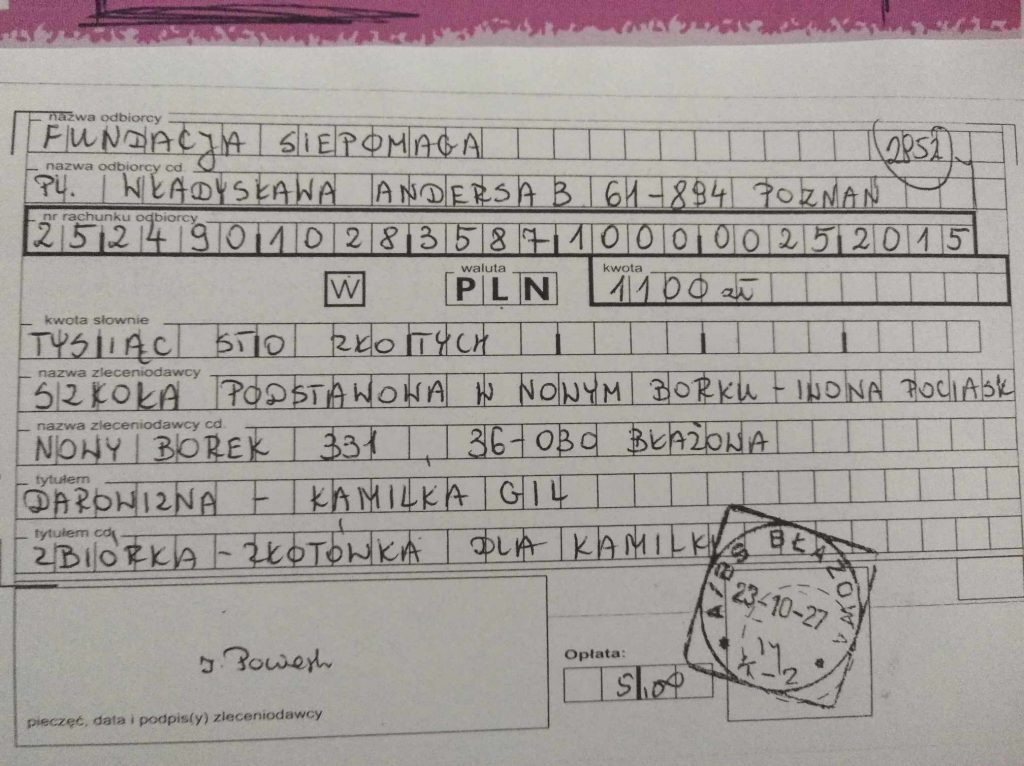 nazwa odbiorcy
FUNDACJA SIEPOMAGA
2852
nazwa odbiorcy cd.
PL. WŁADYSŁAWA ANDERSA 3 61-894 POZNAŃ
nr rachunku odbiorcy
25249010283587100000252015
W
waluta
PLN
kwota
1100 zł
kwota słownie
TYSIĄC STO ZŁOTYCH
nazwa zleceniodawcy
SZKOŁA PODSTAWOWA W NOWYM BORKU - IWONA POCIASK
nazwa zleceniodawcy cd.
NOWY BOREK 331, 36-030 BŁAŻOWA
tytułem
DAROWIZNA - KAMILKA GIL
tytułem cd.
ZBIÓRKA - ZŁOTÓWKA DLA KAMILKI
BŁAŻOWA
23-10-27
Opłata:
5,00
pieczęć, data i podpis(y) zleceniodawcy